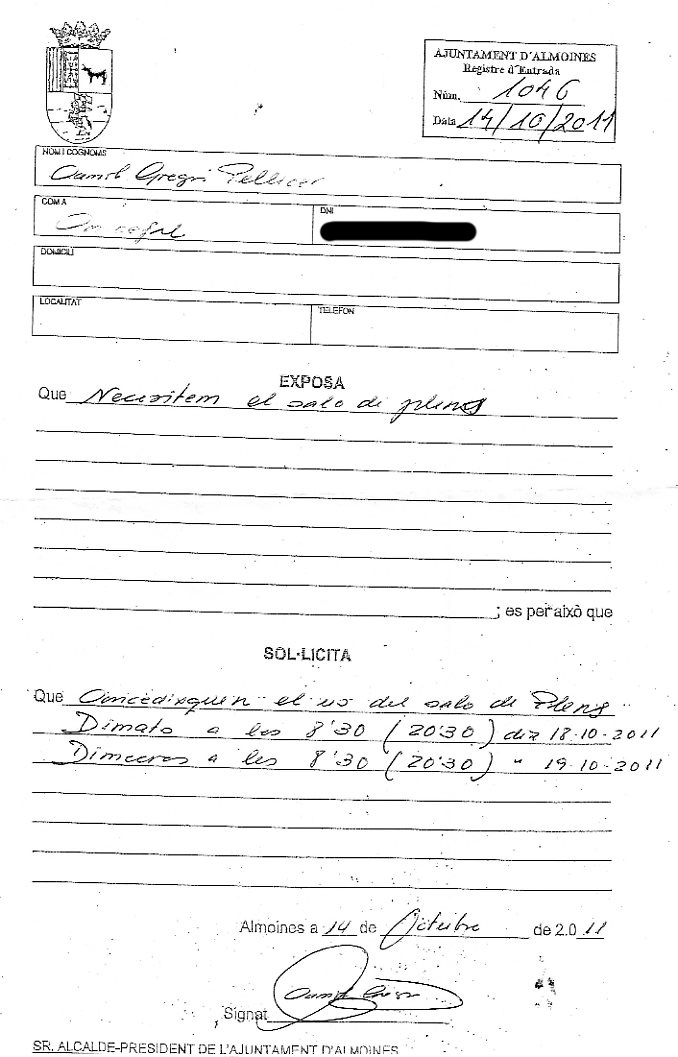 AJUNTAMENT D'ALMOINES
Registre d'Entrada
Núm. 1046
Data 14/10/2011
NOM I COGNOMS
Gregori Pellicer
COM A
DNI
DOMICILI
LOCALITAT
TELEFON
EXPOSA
Que Necesitem el salo de plens
; es per això que
SOL·LICITA
Que Concedisquen el us del salo de Plens
Dimats a les 8'30 (20'30) dia 18-10-2011
Dimecres a les 8'30 (20'30) " 19-10-2011
Almoines a 14 de Octubre de 2.011
Signat
SR. ALCALDE-PRESIDENT DE L'AJUNTAMENT D'ALMOINES